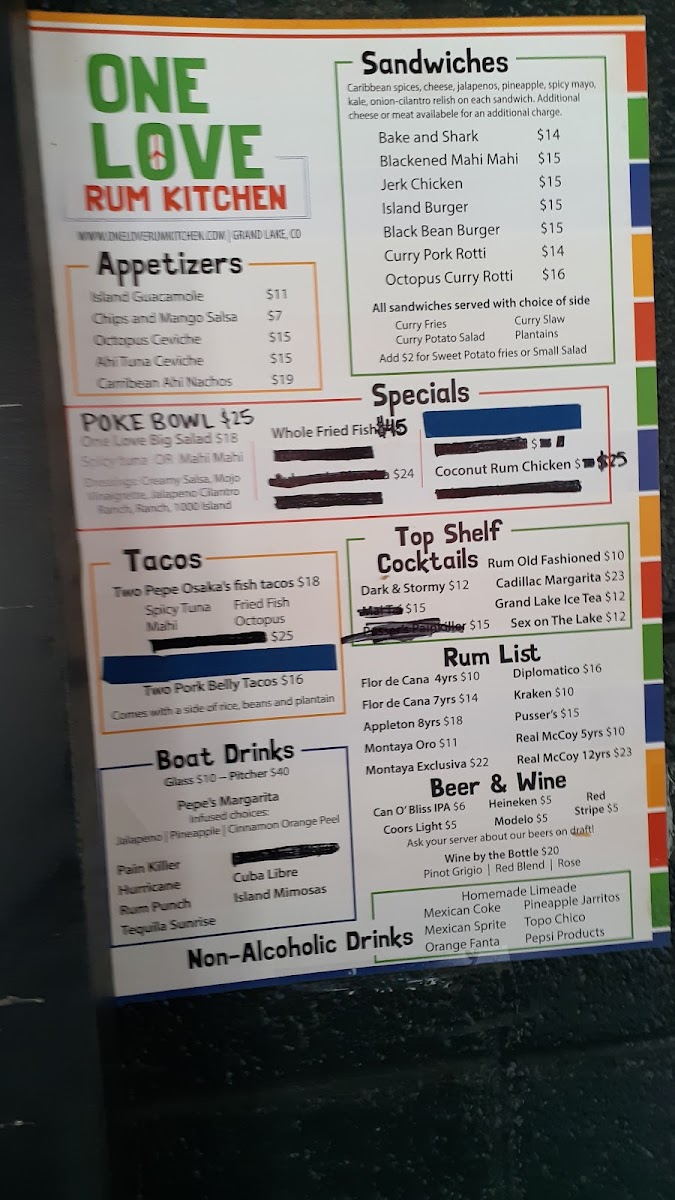 ONE
LOVE
RUM KITCHEN
WWW.ONELOVERUMKITCHEN.COM | GRAND LAKE, CO
Appetizers
Island Guacamole $11
Chips and Mango Salsa $7
Octopus Ceviche $15
Ahi Tuna Ceviche $15
Carribean Ahi Nachos $19
Sandwiches
Caribbean spices, cheese, jalapenos, pineapple, spicy mayo,
kale, onion-cilantro relish on each sandwich. Additional
cheese or meat availabele for an additional charge.
Bake and Shark $14
Blackened Mahi Mahi $15
Jerk Chicken $15
Island Burger $15
Black Bean Burger $15
Curry Pork Rotti $14
Octopus Curry Rotti $16
All sandwiches served with choice of side
Curry Fries Curry Slaw
Curry Potato Salad Plantains
Add $2 for Sweet Potato fries or Small Salad
Specials
POKE BOWL $25
One Love Big Salad $18
Spicy tuna OR Mahi Mahi
Dressings: Creamy Salsa, Mojo
Vinaigrette, Jalapeno Cilantro
Ranch, Ranch, 1000 Island
Whole Fried Fish $45
$24
$
Coconut Rum Chicken $ $25
Tacos
Two Pepe Osaka's fish tacos $18
Spicy Tuna Fried Fish
Mahi Octopus
$25
Two Pork Belly Tacos $16
Comes with a side of rice, beans and plantain
Top Shelf
Cocktails
Dark & Stormy $12
Mai Tai $15
Pusser's Painkiller $15
Rum Old Fashioned $10
Cadillac Margarita $23
Grand Lake Ice Tea $12
Sex on The Lake $12
Rum List
Flor de Cana 4yrs $10
Flor de Cana 7yrs $14
Appleton 8yrs $18
Montaya Oro $11
Montaya Exclusiva $22
Diplomatico $16
Kraken $10
Pusser's $15
Real McCoy 5yrs $10
Real McCoy 12yrs $23
Boat Drinks
Glass $10 – Pitcher $40
Pepe's Margarita
Infused choices:
Jalapeno | Pineapple | Cinnamon Orange Peel
Pain Killer
Hurricane
Rum Punch
Tequila Sunrise
Cuba Libre
Island Mimosas
Beer & Wine
Can O' Bliss IPA $6 Heineken $5 Red
Coors Light $5 Modelo $5 Stripe $5
Ask your server about our beers on draft!
Wine by the Bottle $20
Pinot Grigio | Red Blend | Rose
Non-Alcoholic Drinks
Homemade Limeade
Mexican Coke Pineapple Jarritos
Mexican Sprite Topo Chico
Orange Fanta Pepsi Products